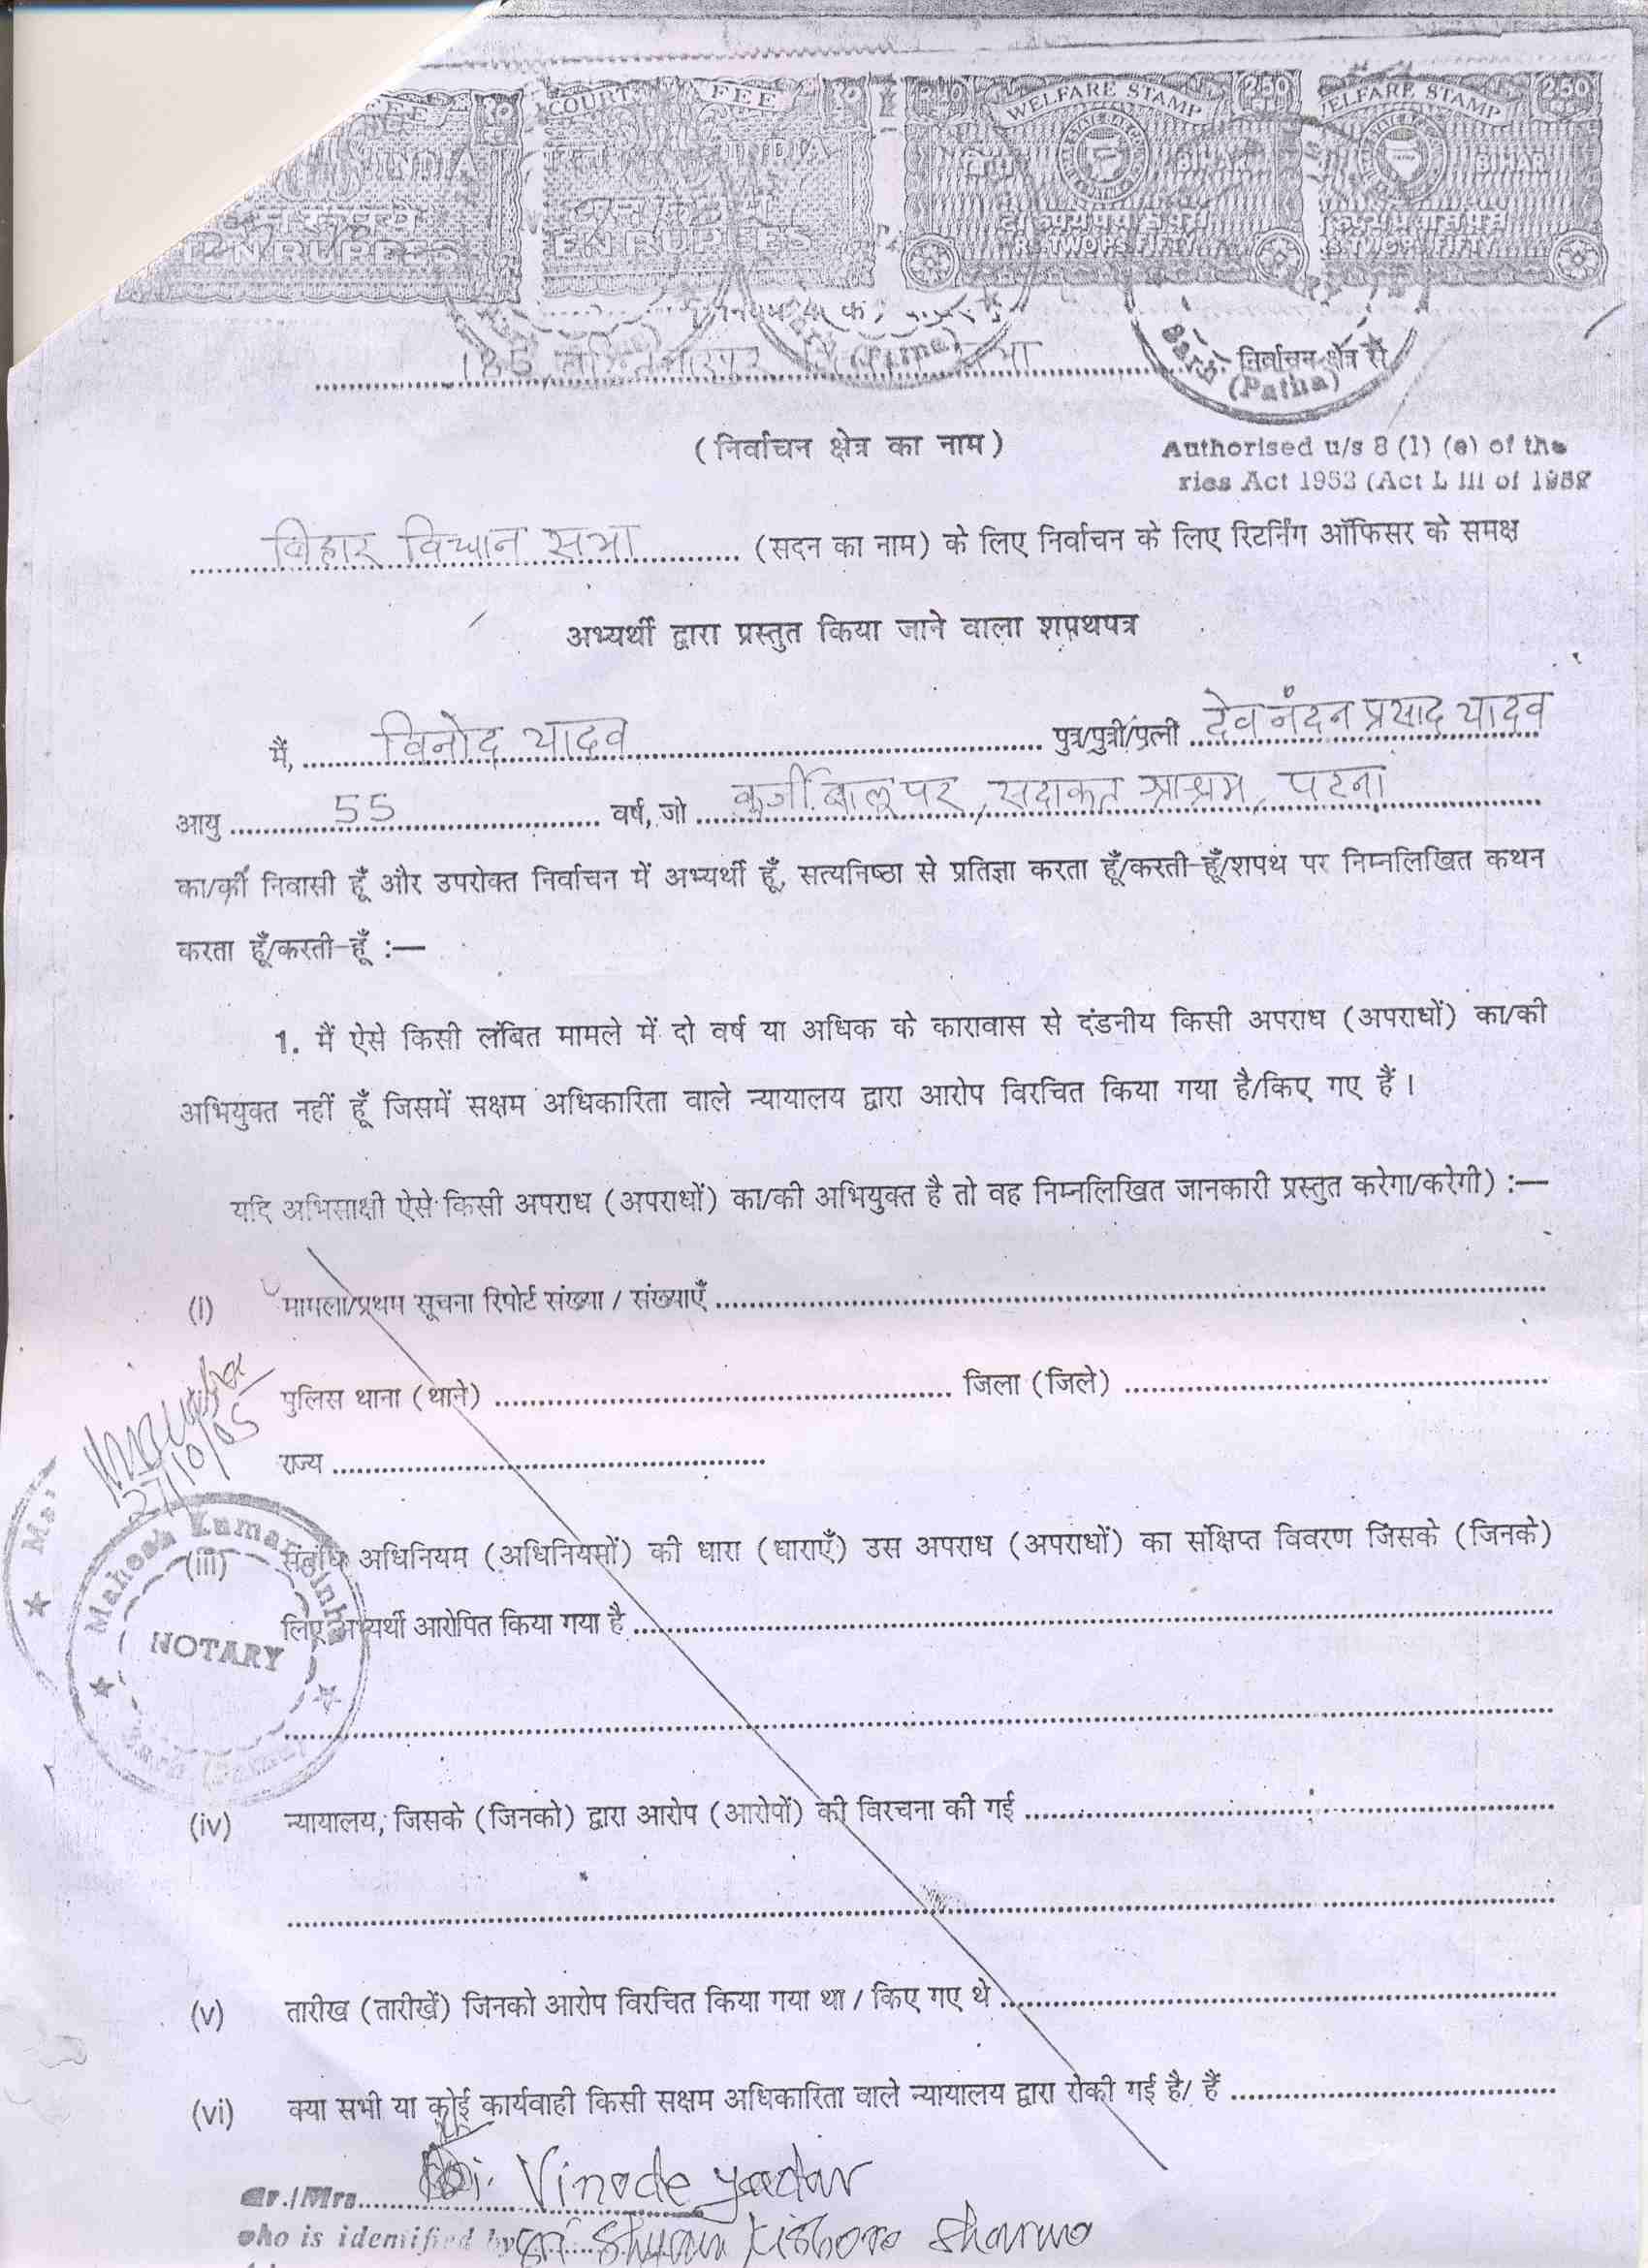 COURT FEE
WELFARE STAMP 250
WELFARE STAMP 250
INDIA
INDIA
BIHAR
BIHAR
TEN RUPEES
EN RUPEES
RS. TWO PS. FIFTY
FIFTY
185
निर्वाचन क्षेत्र से
(Patna)
(निर्वाचन क्षेत्र का नाम)
Authorised u/s 8 (1) (e) of the
ries Act 1952 (Act L III of 1952
बिहार विधान सभा (सदन का नाम) के लिए निर्वाचन के लिए रिटर्निंग ऑफिसर के समक्ष
अभ्यर्थी द्वारा प्रस्तुत किया जाने वाला शपथपत्र
मैं, विनोद यादव पुत्र/पुत्री/पत्नी देव नंदन प्रसाद यादव
आयु 55 वर्ष, जो कुर्जी बालुपर, सदाकत आश्रम, पटना
का/की निवासी हूँ और उपरोक्त निर्वाचन में अभ्यर्थी हूँ, सत्यनिष्ठा से प्रतिज्ञा करता हूँ/करती हूँ/शपथ पर निम्नलिखित कथन
करता हूँ/करती हूँ :—
1. मैं ऐसे किसी लंबित मामले में दो वर्ष या अधिक के कारावास से दंडनीय किसी अपराध (अपराधों) का/की
अभियुक्त नहीं हूँ जिसमें सक्षम अधिकारिता वाले न्यायालय द्वारा आरोप विरचित किया गया है/किए गए हैं ।
यदि अभिसाक्षी ऐसे किसी अपराध (अपराधों) का/की अभियुक्त है तो वह निम्नलिखित जानकारी प्रस्तुत करेगा/करेगी) :—
(i) मामला/प्रथम सूचना रिपोर्ट संख्या / संख्याएँ
पुलिस थाना (थाने) जिला (जिले)
राज्य
27/10/05
Mahesh Kumar Sinha
(iii) संबंधि अधिनियम (अधिनियमों) की धारा (धाराएँ) उस अपराध (अपराधों) का संक्षिप्त विवरण जिसके (जिनके)
लिए अभ्यर्थी आरोपित किया गया है
NOTARY
(iv) न्यायालय, जिसके (जिनको) द्वारा आरोप (आरोपों) की विरचना की गई
(v) तारीख (तारीखें) जिनको आरोप विरचित किया गया था / किए गए थे
(vi) क्या सभी या कोई कार्यवाही किसी सक्षम अधिकारिता वाले न्यायालय द्वारा रोकी गई है/ हैं
Mr./Mrs. Vinode Yadav
who is identified by Sri Shyam Kishore Sharma